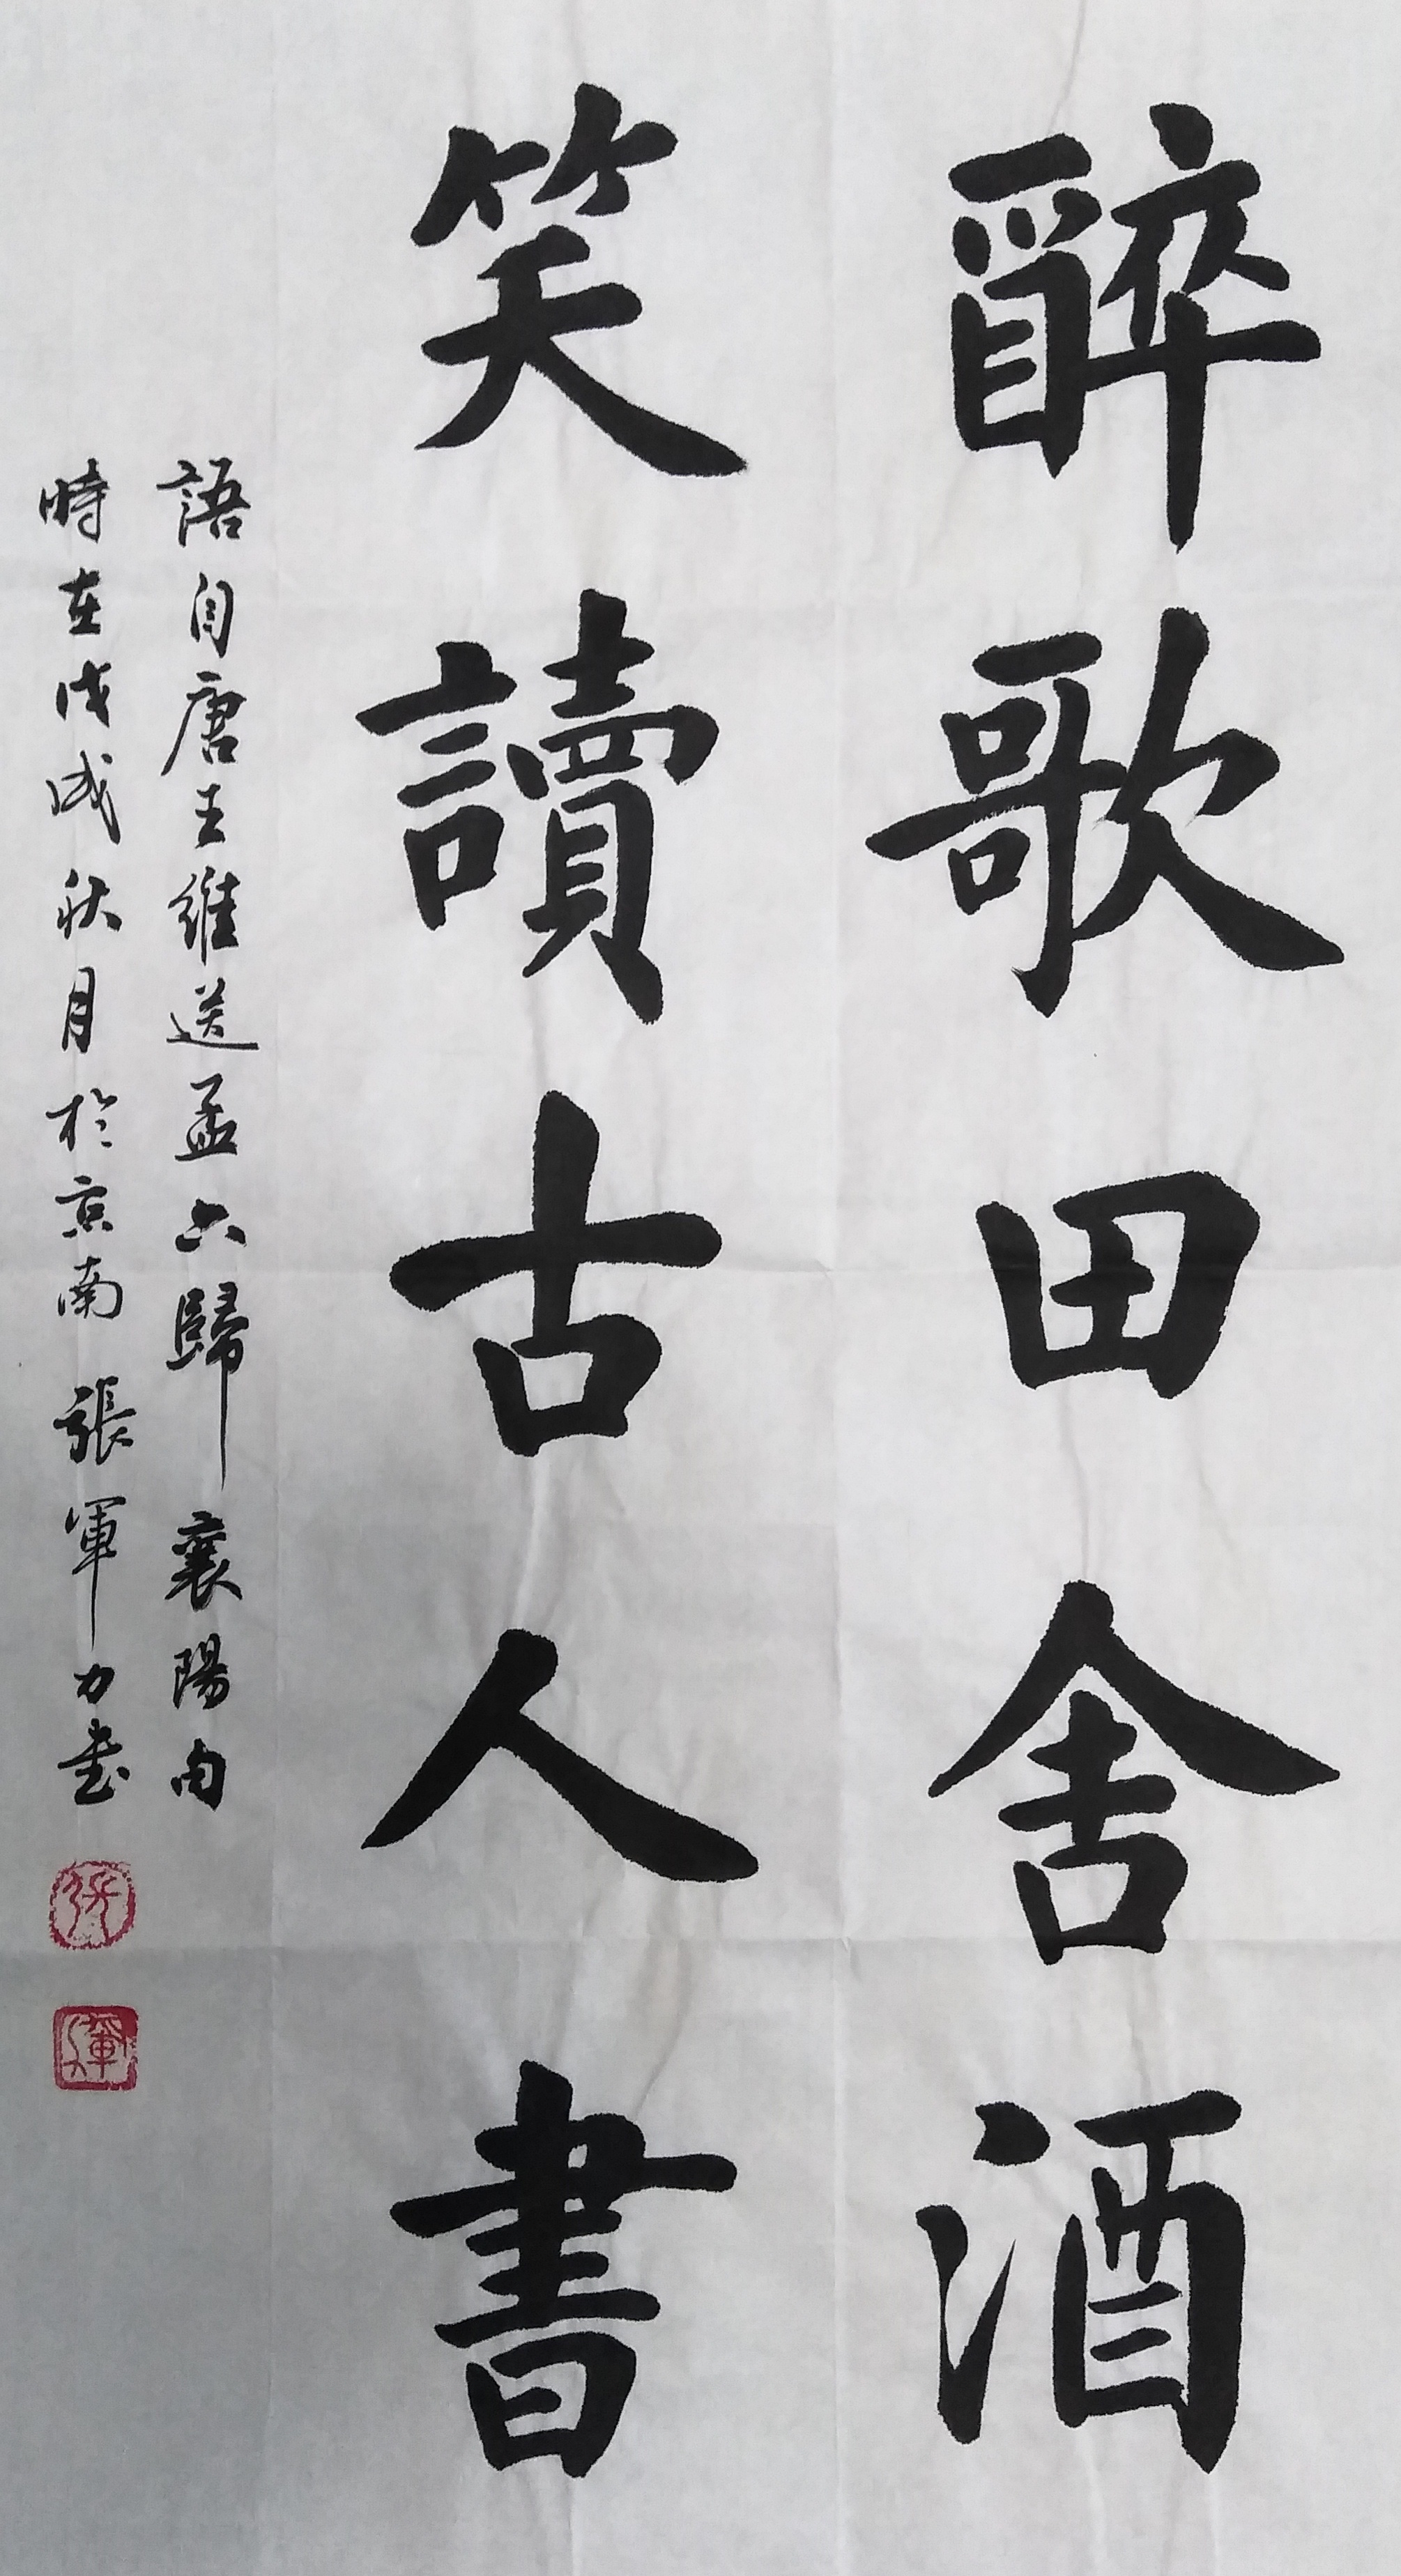 醉歌田舍酒
笑讀古人書
語自唐王維送孟六歸襄陽句
時在戊戌秋月於京南張軍力書